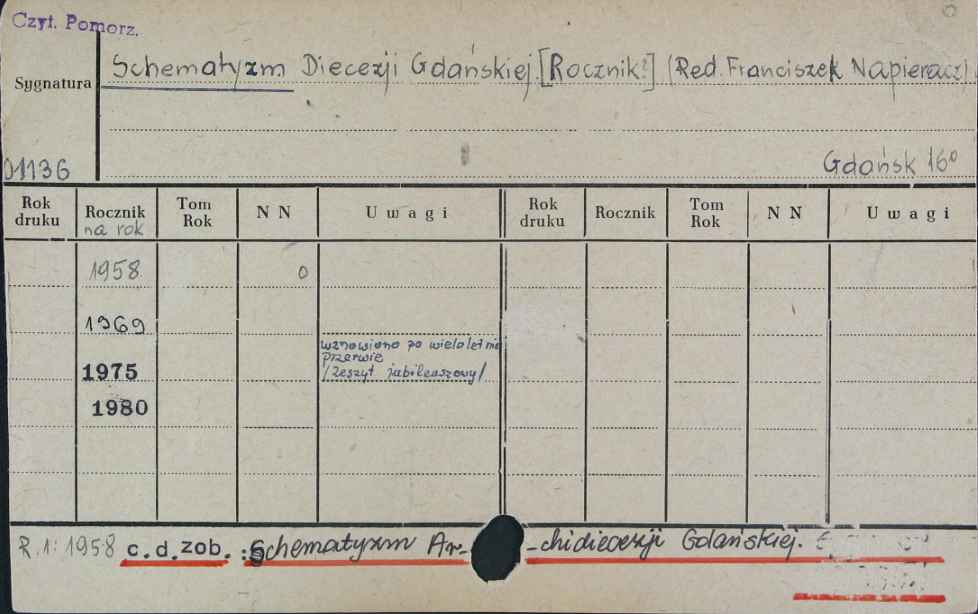 Czyt. Pomorz.
Schematyzm Diecezji Gdańskiej. [Rocznik?] (Red. Franciszek Napieracz)
Sygnatura
01136
Gdańsk 16°
Rok druku Rocznik na rok Tom Rok N N Uwagi Rok druku Rocznik Tom Rok N N Uwagi
1958 0
1969
wznowiono po wieloletnie
przerwie
1975 /Zeszyt jubileuszowy/
1980
R.1: 1958 c.d.zob. : Schematyzm Ar- -chidiecezji Gdańskiej.